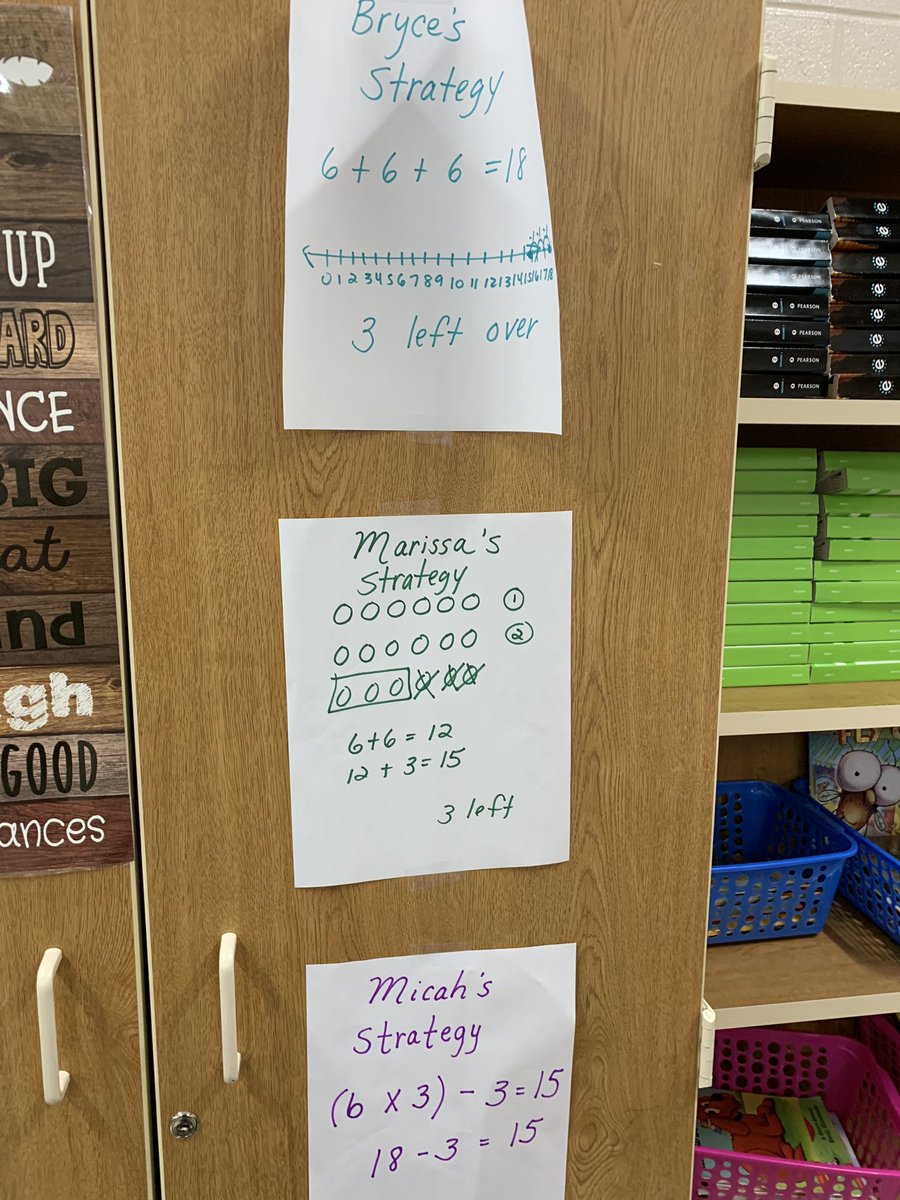 Bryce's
Strategy
6 + 6 + 6 = 18
-1 -1 -1
0 1 2 3 4 5 6 7 8 9 10 11 12 13 14 15 16 17 18
3 left over
Marissa's
Strategy
1
2
6+6 = 12
12 + 3 = 15
3 left
Micah's
Strategy
(6 x 3) - 3 = 15
18 - 3 = 15
UP
ARD
NCE
BIG
at
nd
gh
GOOD
ances
PEARSON
PEARSON
PEARSON
PEARSON
PEARSON
PEARSON
PEARSON